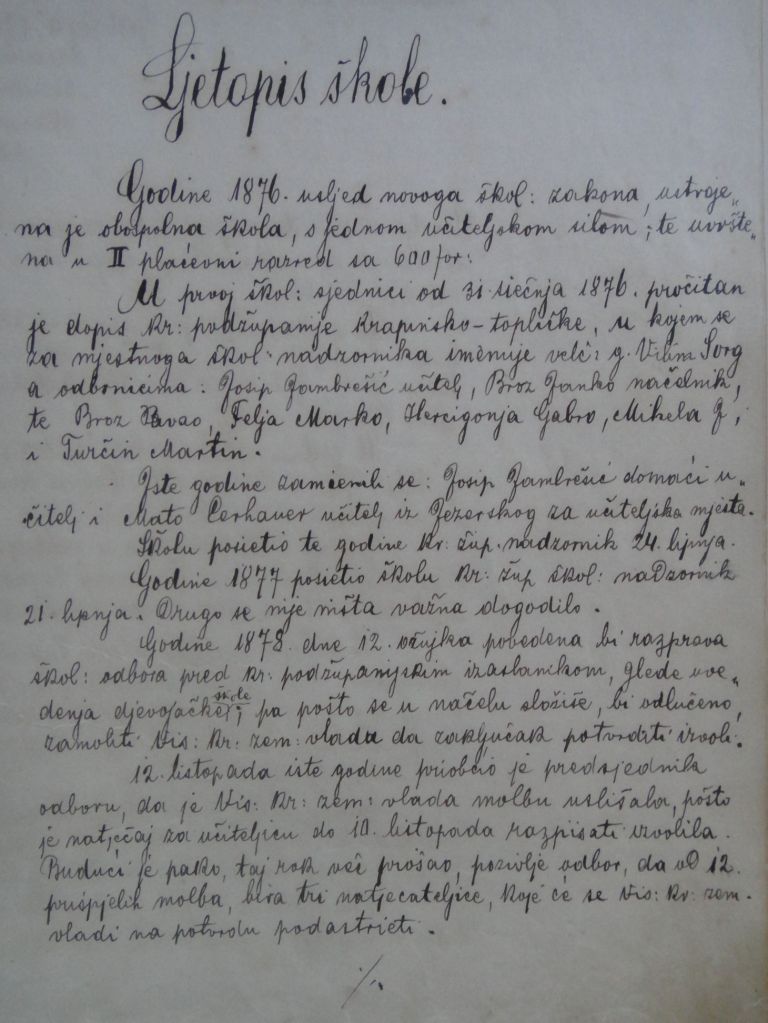 Ljetopis škole.
Godine 1876. usljed novoga škol: zakona, ustroje„
na je obospolna škola, s jednom učiteljskom silom; te uvršte„
na u II plaćevni razred sa 600 for:
U prvoj škol: sjednici od 31 siečnja 1876. pročitan
je dopis kr: podžupanije krapinsko-topličke, u kojem se
za mjestnoga škol: nadzornika imenuje velč: g. Vilim Sorg
a odbornicima: Josip Jambrešić učitelj, Broz Janko načelnik,
te Broz Pavao, Felja Marko, Hercigonja Gabro, Mikela J,
i Turčin Martin.
Iste godine zamienili se: Josip Jambrešić domaći u„
čitelj i Mato Cerhauer učitelj iz Jezerskog za učiteljska mjesta.
Školu posietio te godine kr: žup. nadzornik 24. lipnja.
Godine 1877 posietio školu kr: žup škol: nadzornik
21. lipnja. Drugo se nije ništa važna dogodilo.
Godine 1878. dne 12. ožujka povedena bi razprava
škol: odbora pred kr: podžupanijskim izaslanikom, glede uve„
denja djevojačke škole; pa pošto se u načelu složiše, bi odlučeno,
zamoliti Vis: kr: zem: vladu da zaključak potvrditi izvoli.
12. listopada iste godine priobćio je predsjednik
odboru, da je Vis: kr: zem: vlada molbu uslišala, pošto
je natječaj za učiteljicu do 10. listopada razpisati izvolila.
Budući je pako, taj rok već prošao, pozivlje odbor, da od 12.
prispjelih molba, bira tri natjecateljice, koje će se Vis: kr: zem.
vladi na potvrdu podastrieti.